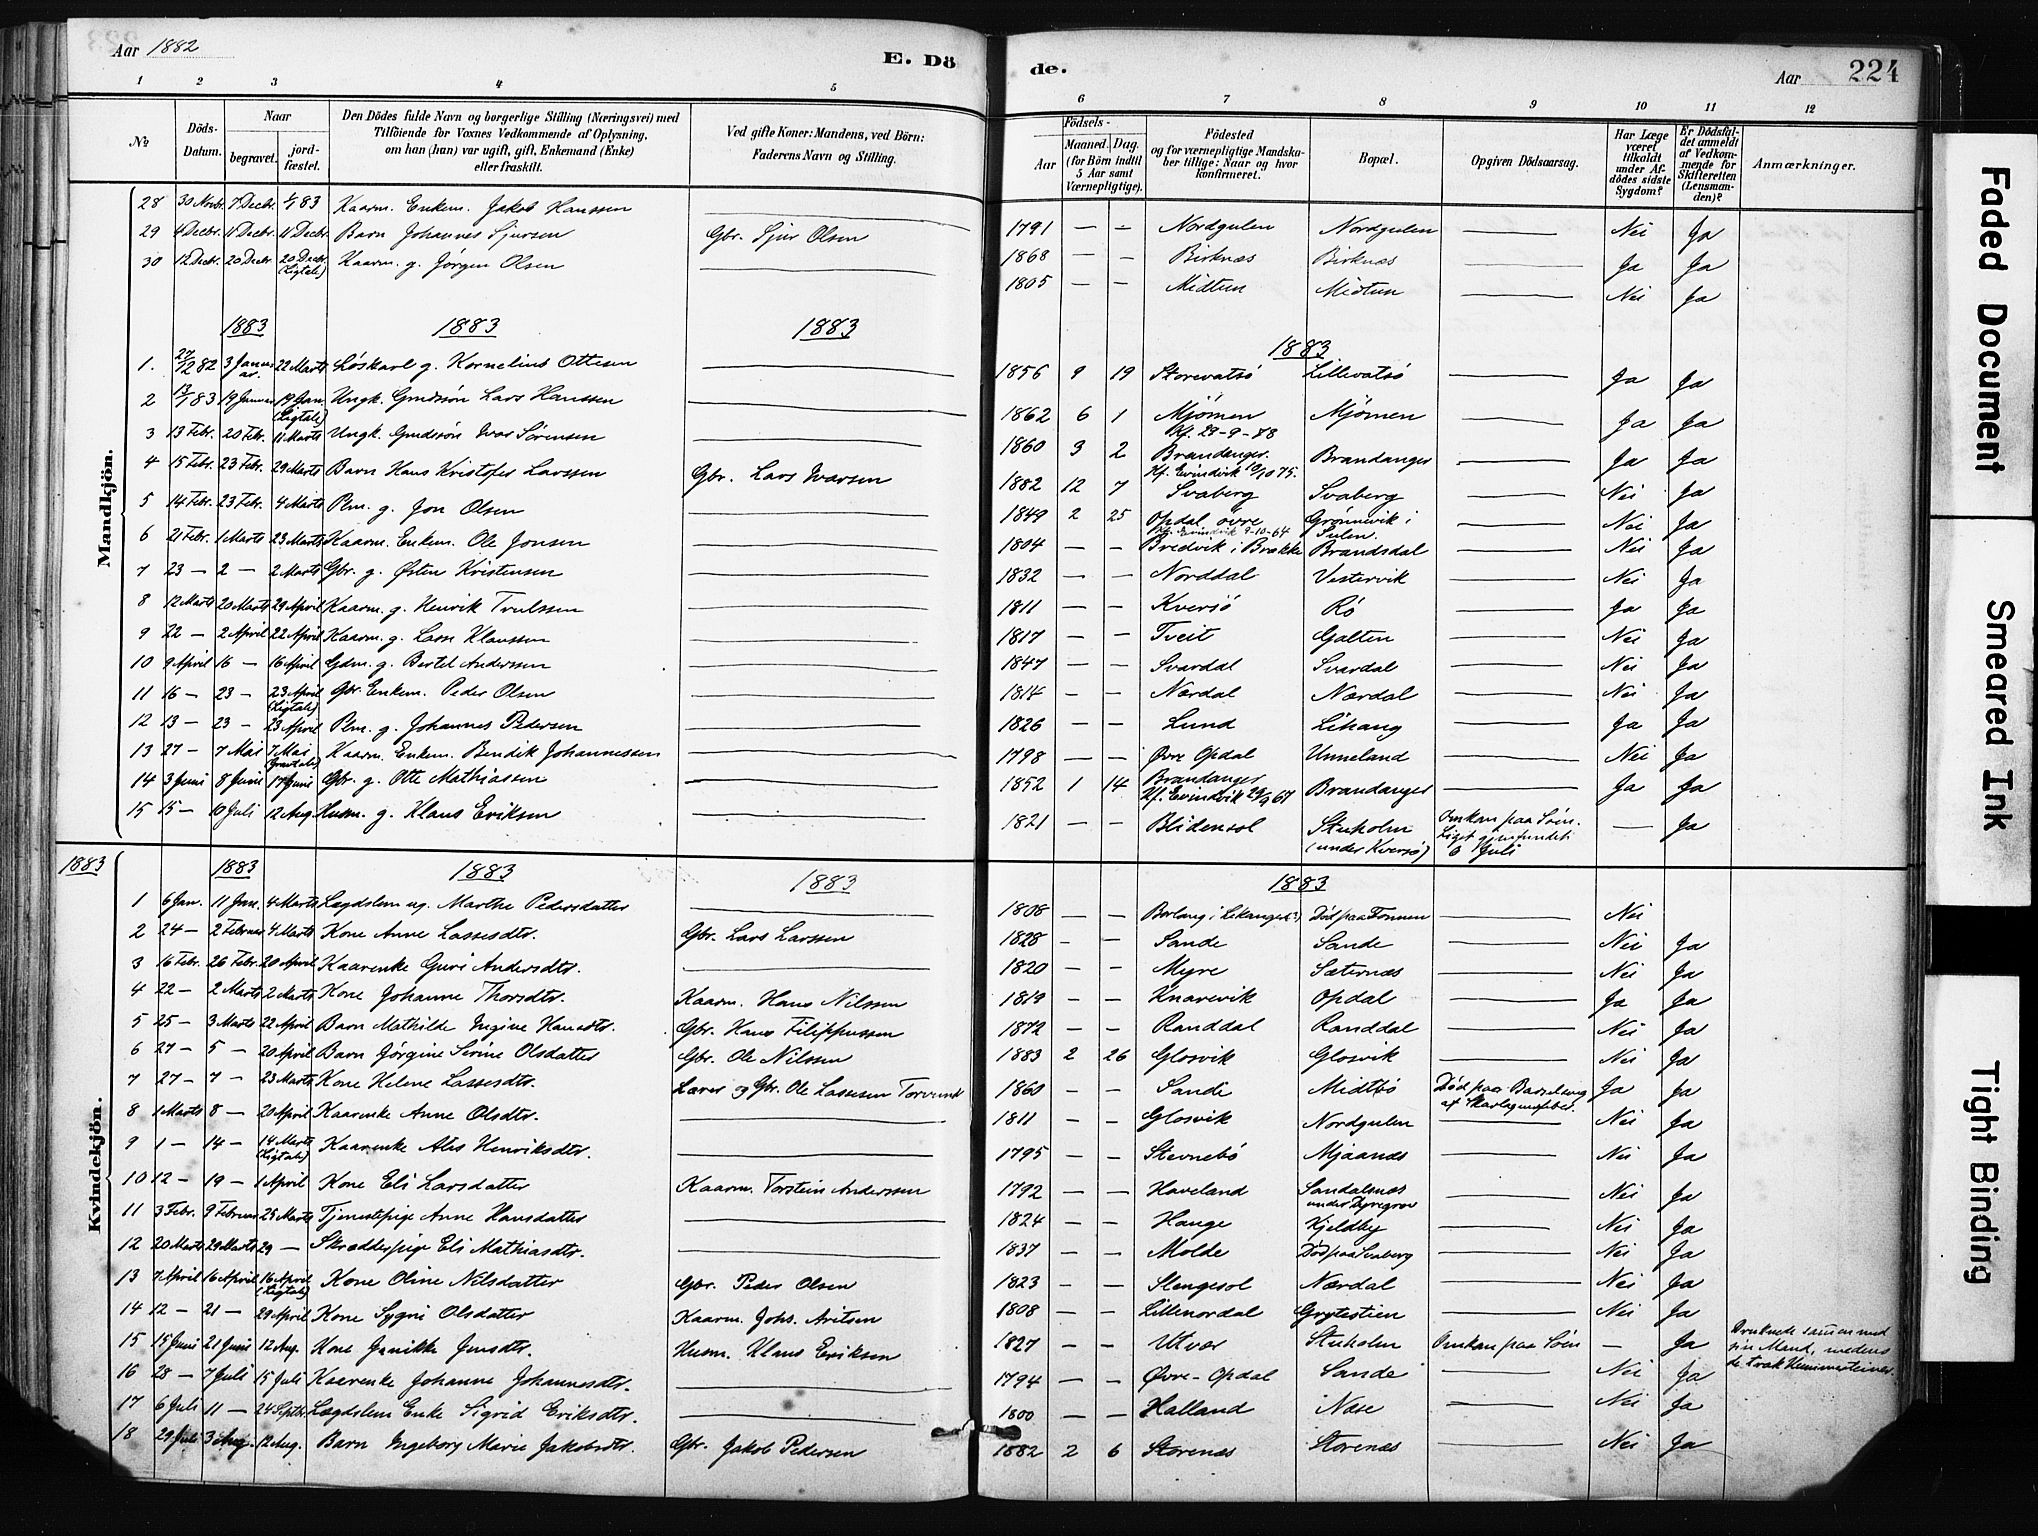 Aar 1882 E. Dö de. Aar 224
1 2 3 4 5 6 7 8 9 10 11 12
№ Döds-Datum. Naar begravet. jordfæstet. Den Dödes fulde Navn og borgerlige Stilling (Næringsvei) med Tilföiende for Voxnes Vedkommende af Oplysning, om han (hun) var ugift, gift, Enkemand (Enke) eller fraskilt. Ved gifte Koner: Mandens, ved Börn: Faderens Navn og Stilling. Födsels- Aar Maaned. Dag. (for Börn indtil 5 Aar samt Værnepligtige). Födested og for værnepligtige Mandskaber tillige: Naar og hvor konfirmeret. Bopæl. Opgiven Dödsaarsag. Har Læge været tilkaldt under Afdödes sidste Sygdom? Er Dödsfaldet anmeldt af Vedkommende for Skifteretten (Lensmanden)? Anmærkninger.
Mandkjön.
28 30 Novbr. 7 Decbr. 83 Kaarm. Enkem. Jakob Hanssen — 1791 — — Nordgulen Nordgulen — Nei Ja
29 4 Decbr. 11 Decbr. 11 Decbr. Barn Johannes Sjursen Gbr. Sjur Olsen 1868 — — Birknæs Birknæs — Ja Ja
30 12 Decbr. 20 Decbr. 20 Decbr. (Ligtale) Kaarm. g. Jørgen Olsen — 1805 — — Midtun Midtun — Nei Ja
1883 1883 1883 1883
1. 27/12 82 3 Januar. 22 Marts Løskarl g. Kornelius Ottesen — 1856 9 19 Storevatsö Lillevatsö — Ja Ja
2 13/1 83 19 Januar 19 Jan. (Ligtale) Ungk. Grudssön Lars Hanssen — 1862 6 1 Mjömen Kf. 29-9-78 Mjömen — Ja Ja
3 13 Febr. 20 Febr. 11 Marts Ungk. Ivar Sörensen — 1860 3 2 Brandanger. Kf. Evindvik 10/10 75. Brandanger — Ja Ja
4 15 Febr. 23 Febr. 29 Marts Barn Hans Kristofer Larssen Gbr. Lars Ivarsen 1882 12 7 Svaberg Svaberg — Nei Ja
5 14 Febr. 23 Febr. 4 Marts Plm. g. Jon Olsen — 1849 2 25 Opdal øvre Kf. Evindvik 9-10-64 Grönnevik i Sulen. — Nei Ja
6 21 Febr. 1 Marts 23 Marts Kaarm. Enkem. Ole Jonsen — 1804 — — Bredvik i Brække Brandsdal — Nei Ja
7 23 — 2 — 2 Marts Gbr. g. Østen Kristensen — 1832 — — Norddal Vestervik — Nei Ja
8 12 Marts 20 Marts 29 April Kaarm. g. Henrik Trulssen — 1811 — — Kversö Rö — Ja Ja
9 22 — 2 April 22 April Kaarm. g. Lasse Klaussen — 1817 — — Tveit Galten — Nei Ja
10 9 April 16 — 16 April Gdm. g. Bertel Anderssen — 1847 — — Svardal Svardal — Nei Ja
11 16 — 23 — 23 April (Ligtale) Gbr. Enkem. Peder Olsen — 1814 — — Nærdal Nærdal — Nei Ja
12 13 — 23 — 23 April Plm. g. Johannes Pedersen — 1826 — — Lund Likang — Ja Ja
13 27 — 7 Mai 7 Mai (Gravtale) Kaarm. Enkem. Bendik Johannessen — 1798 — — Øvre Opdal Unneland — Nei Ja
14 3 Juni 8 Juni 17 Juni Gbr. g. Otte Mathiassen — 1852 1 14 Brandanger Kf. Evindvik 29/9 67 Brandanger — Ja Ja
15 15 — 10 Juli 12 Aug. Husm. g. Klaus Eriksen — 1821 — — Blidensol Stuholm (under Kversö) Omkom paa Söen. Liget gjenfundet 6 Juli — Ja
1883 1883 1883 1883 1883
Kvindekjön.
1 6 Jan. 11 Jan. 4 Marts Lægdslem ug. Marthe Pedersdatter — 1808 — — Borlaug i Likanger(?) Död paa Tonnen — Nei
2 24 — 2 Februar 4 Marts Kone Anne Lassesdtr. Gbr. Lars Larssen 1828 — — Sande Sande — Nei Ja
3 16 Febr. 26 Febr. 20 April Kaarenke Guri Andersdtr. — 1820 — — Myre Sæternæs — Nei Ja
4 22 — 2 Marts 2 Marts Kone Johanne Thorsdtr. Kaarm. Hans Nilssen 1819 — — Knarvik Opdal — Ja Ja
5 25 — 3 Marts 22 April Barn Mathilde Ingine Hansdtr. Gbr. Hans Filippussen 1872 — — Randdal Randdal — Nei Ja
6 27 — 5 — 20 April Barn Jörgine Serine Olsdatter Gbr. Ole Nilssen 1883 2 26 Glosvik Glosvik — Nei Ja
7 27 — 7 — 23 Marts Kone Helene Lassesdtr. Lærer og Gbr. Ole Lassesen Torvund 1860 — — Sande Midtbö Död paa Barselseng af Skarlagensfeber. Ja Ja
8 1 Marts 8 — 20 April Kaarenke Anne Olsdtr. — 1811 — — Glosvik Nordgulen — Nei Ja
9 1 — 14 — 14 Marts (Ligtale) Kaarenke Alas Henriksdtr. — 1795 — — Stevnebö Mjaanæs — Nei Ja
10 12 — 19 — 1 April Kone Eli Larsdatter Kaarm. Torstein Anderssen 1792 — — Haveland Sandalsnæs under Dyregrov — Nei Ja
11 3 Febr. 9 Februar 25 Marts Tjenestepige Anne Hansdatter — 1824 — — Hauge Kjeldby — Nei Ja
12 20 Marts 29 Marts 29 — Skrædderpige Eli Mathiasdtr. — 1837 — — Molde Död paa Svaberg — Nei Ja
13 7 April 16 April 16 April (Ligtale) Kone Oline Nilsdatter Gbr. Peder Olsen 1823 — — Slengesol Nærdal — Nei Ja
14 12 — 21 — 29 April Kone Sygni Olsdatter Kaarm. Johs. Aritsen 1808 — — Lillenordal Grytestien — Nei Ja
15 15 Juni 21 Juni 12 Aug. Kone Janikke Jensdtr. Husm. Klaus Eriksen 1827 — — Utvær Stuholm Omkom paa Söen — Ja Druknede sammen med sin Mand, medens de trak Hummerteiner.
16 28 — 7 Juli 15 Juli Kaarenke Johanne Johannesdtr. — 1794 — — Øvre-Opdal Sande — Nei Ja
17 6 Juli 11 — 24 Septbr. Lægdslem Enke Sigrid Eriksdtr. — 1800 — — Halland Næse — Nei Ja
18 29 Juli 3 Aug. 12 Aug. Barn Ingeborg Marie Jakobsdtr. Gbr. Jakob Pedersen 1882 2 6 Storenæs Storenæs — Nei Ja
Faded Document
Smeared Ink
Tight Binding